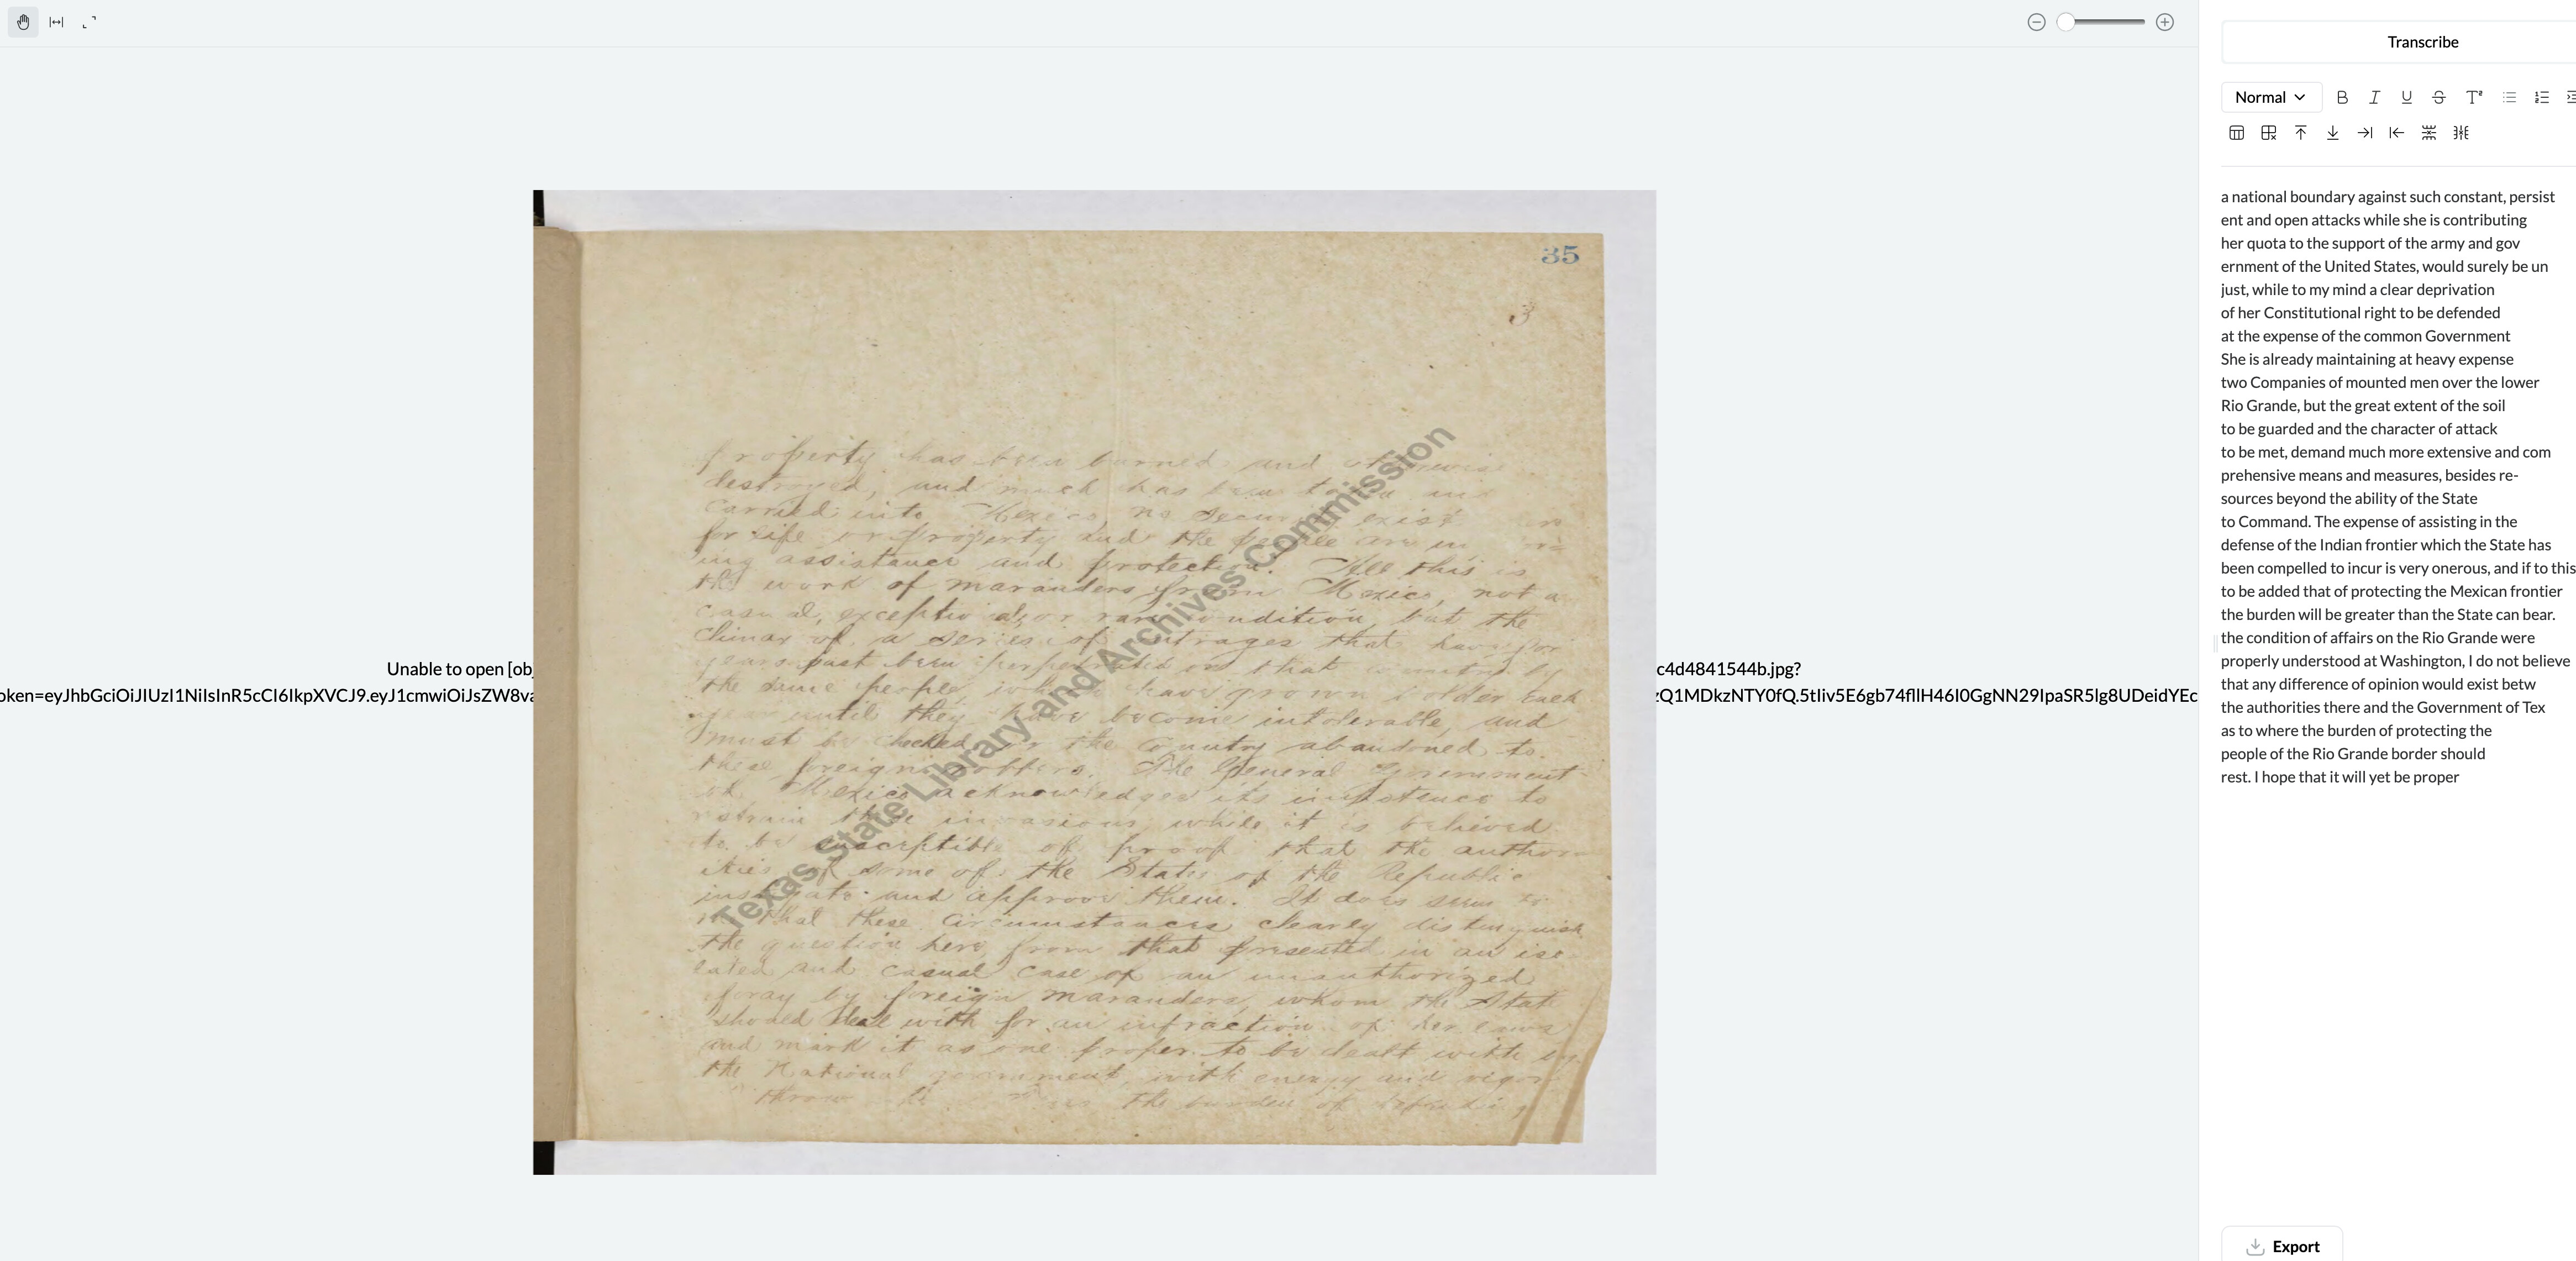 Transcribe
Normal
Unable to open [obj
oken=eyJhbGciOiJIUzI1NiIsInR5cCI6IkpXVCJ9.eyJ1cmwiOiJsZW8va
c4d4841544b.jpg?
zQ1MDkzNTY0fQ.5tIiv5E6gb74fllH46I0GgNN29IpaSR5lg8UDeidYEc
35
3
property has been burned and otherwise
destroyed, and much has been taken and
carried into Mexico, no security exist
for life or property and the people are
ing assistance and protection. All this is
the work of marauders from Mexico, not a
casual, exceptional, or rare condition, but the
climax of a series of outrages that have for
years past been perpetrated on that country by
the same people, who have grown bolder each
year until they have become intolerable, and
must be checked or the Country abandoned to
these foreign robbers. The General Government
of Mexico acknowledges its impotence to
restrain these invasions while it is believed
to be susceptible of proof that the author
ities of some of the States of the Republic
instigate and approve them. It does seem to
me that these circumstances clearly distinguish
the question here from that presented in an iso-
lated and casual case of an unauthorized
foray by foreign marauders, whom the State
should deal with for an infraction of her laws
and mark it as one proper to be dealt with by
the National government, with energy and vigor
throw the burden of defending
Texas State Library and Archives Commission
a national boundary against such constant, persist
ent and open attacks while she is contributing
her quota to the support of the army and gov
ernment of the United States, would surely be un
just, while to my mind a clear deprivation
of her Constitutional right to be defended
at the expense of the common Government
She is already maintaining at heavy expense
two Companies of mounted men over the lower
Rio Grande, but the great extent of the soil
to be guarded and the character of attack
to be met, demand much more extensive and com
prehensive means and measures, besides re-
sources beyond the ability of the State
to Command. The expense of assisting in the
defense of the Indian frontier which the State has
been compelled to incur is very onerous, and if to this
to be added that of protecting the Mexican frontier
the burden will be greater than the State can bear.
the condition of affairs on the Rio Grande were
properly understood at Washington, I do not believe
that any difference of opinion would exist betw
the authorities there and the Government of Tex
as to where the burden of protecting the
people of the Rio Grande border should
rest. I hope that it will yet be proper
Export